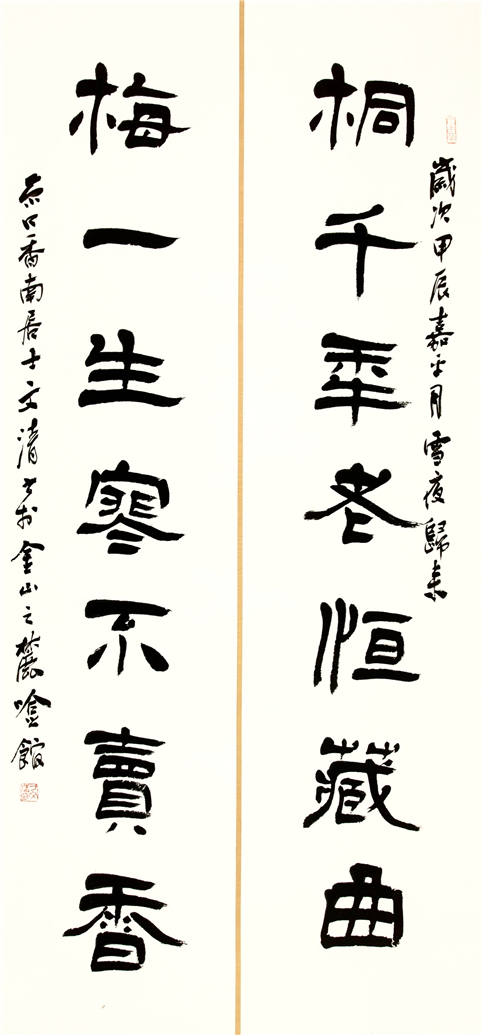 歲次甲辰嘉平月雪夜歸來
桐千年老恒藏曲
梅一生寒不賣香
香南居士文清書於金山之麓
館